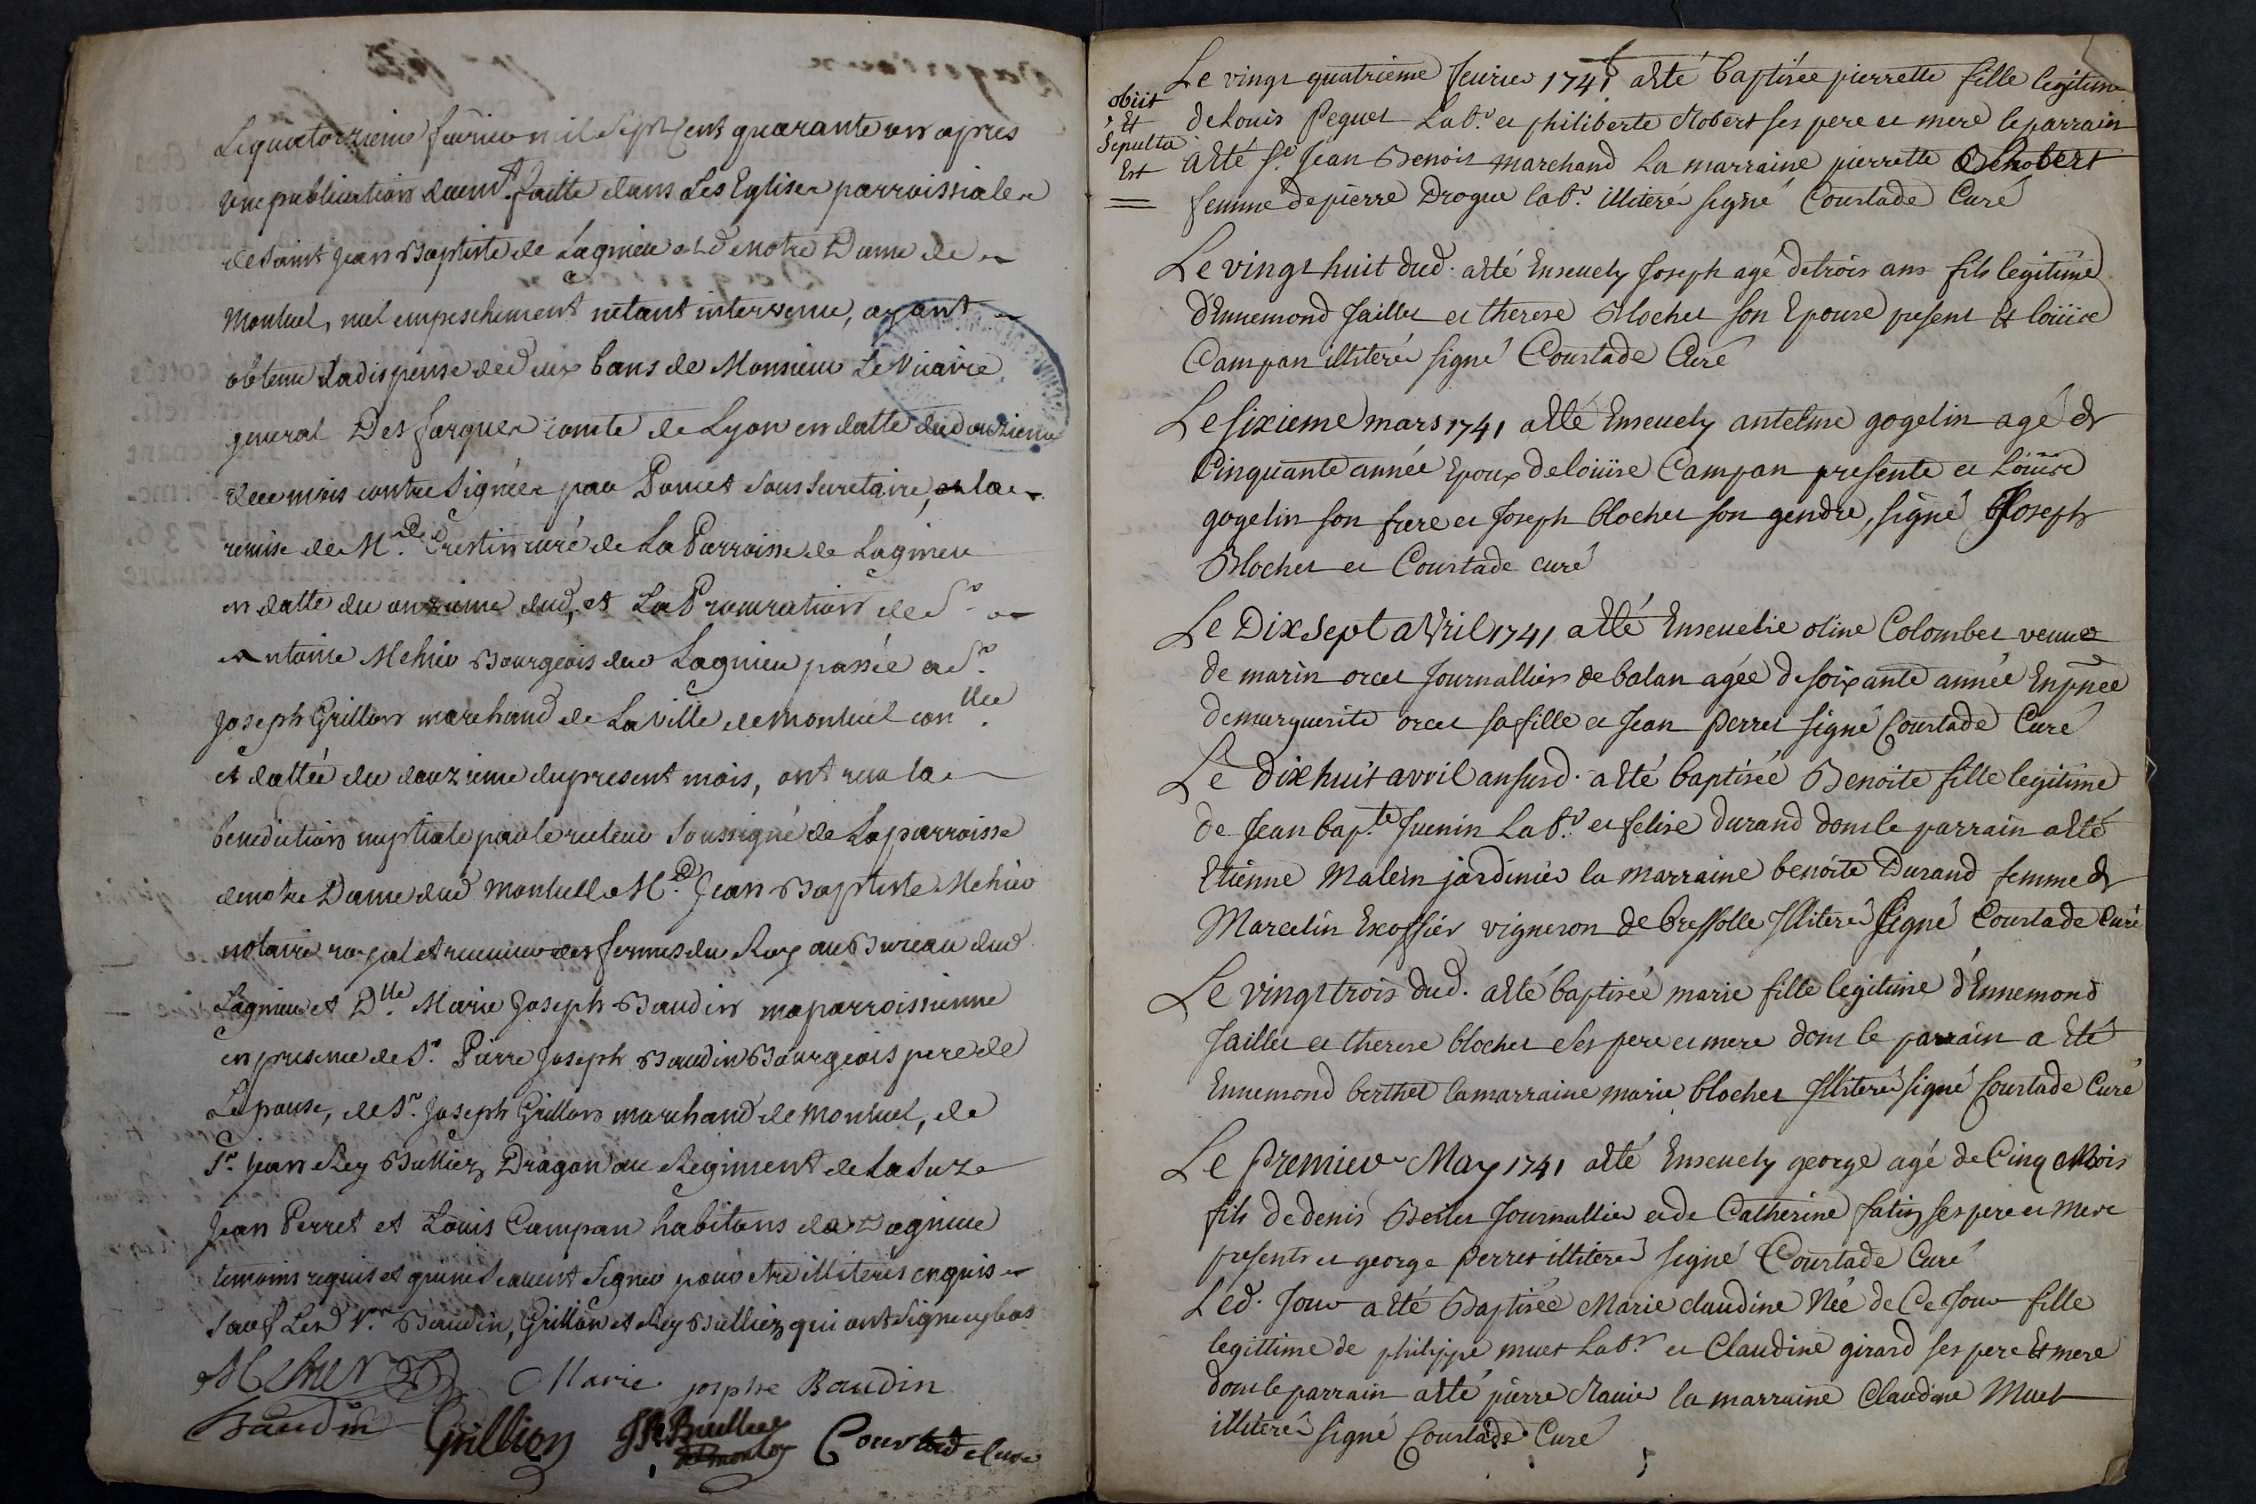 Le quatorzieme fevrier mil sept cent quarante un apres
une publication duem.t faitte dans les Eglises parroissiales
de saint Jean Baptiste de Lagnieu et de notre Dame de
Montuel, nul empeschement n'etant intervenu, ayant
obtenu la dispense de deux bans de Monsieur Le Vicaire
general Des fargues comte de Lyon en datte du douzieme
de ce mois contre signée par Poncet sous secretaire, et la
remise de M.re Crestin curé de La Parroisse de Lagnieu
en datte du onzieme dud. et La Procuration de S.r
antoine Mehier Bourgeois dud Lagnieu passée a S.r
Joseph Grillion marchand de La ville de montuel
et dattée du douzieme du present mois, ont receu la
benediction nuptiale par le recteur soussigné de La parroisse
de notre Dame dud Montuel M.e Jean Baptiste Mehier
notaire royal et receveur des fermes du Roy au Bureau dud
Lagnieu et D.lle Marie Joseph Baudin ma parroissienne
en presence de S.r Pierre Joseph Baudin Bourgeois pere de
L'epouse, de S.r Joseph Grillion marchand de montuel, de
S.r Jean Rey Bulliez Dragon au Regiment de La Suze
Jean Perret et Louis Campan habitans de Dagnieu
temoins requis et qui ne scavent signer pour etre illiteres enquis
sauf Lesd. S.rs Baudin, Grillion et Rey Bulliez qui ont signe cy bas
Mehier Marie josphe Baudin
Baudin Grillion JR Bulliez Courtade Cure
Le vingt quatrieme fevrier 1741 a eté baptisée pierrette fille legitime
obiit
Et
Sepulta
Est
de Louis Peguet Lab.r et philiberte Robert ses pere et mere le parrain
a eté S.r Jean Benoit marchand La marraine pierrette Robert
femme de pierre Drogue lab.r illiteré signé Courtade Curé
Le vingt huit dud. a eté Ensevely Joseph agé de trois ans fils legitime
d'Ennemond Jaillet et therese Blochet son Epouse present Et loüise
Campan illiterés signé Courtade Curé
Le sixieme mars 1741 a eté Ensevely antelme gogelin agé de
Cinquante année Epoux de loüise Campan presente et Loüise
gogelin son frere et Joseph blochet son gendre, signé Joseph
Blochet et Courtade curé
Le Dix sept aVril 1741 a eté Ensevelie oline Colombet veuve
de marin orcet Journallier de balan agée de soixante année En pñce
de marguerite orcet sa fille et Jean Perret signé Courtade Curé
Le dix huit avril an susd. a eté baptisée Benoite fille legitime
de Jean bap.te Juenin Lab.r et felise durand dont le parrain a eté
Etienne Malein jardinier la marraine benoite Durand femme de
Marcelin Excoffier vigneron de bressolle Illiteré signé Courtade Curé
Le vingt trois dud. a eté baptisée marie fille legitime d'Ennemond
Jaillet et therese blochet ses pere et mere dont le parrain a Eté
Ennemond berthet la marraine marie blochet Illiteré signé Courtade Curé
Le Premier May 1741 a eté Ensevely george agé de Cinq Mois
fils de denis Journallier et de Catherine ses pere et Mere
presents et george Perret illiteré signé Courtade Curé
Led. Jour a eté Baptisée Marie claudine Née de Ce Jour fille
legittime de philippe muet Lab.r et Claudine girard ses pere Et mere
dont le parrain a eté pierre Ravier la marraine Claudine Muet
illiteré signé Courtade Curé